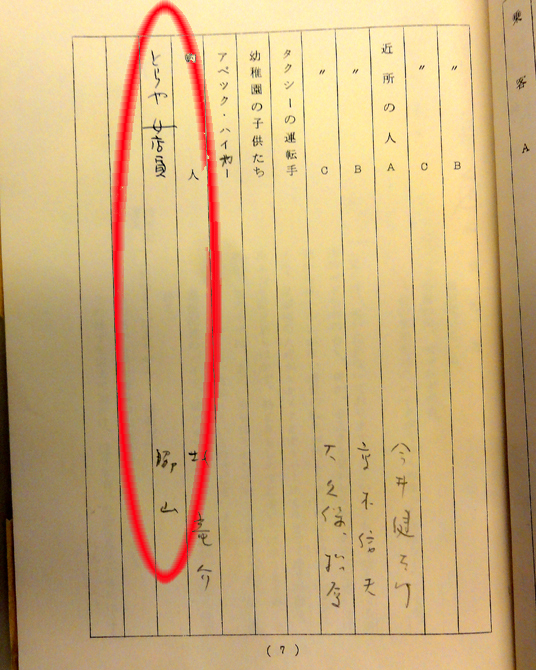 乗客 A
〃 B
〃 C
近所の人 A 今井健太郎
〃 B 高木信夫
〃 C 大久保
タクシーの運転手
幼稚園の子供たち
アベック・ハイカー
人 介
とらや女店員 山
(7)